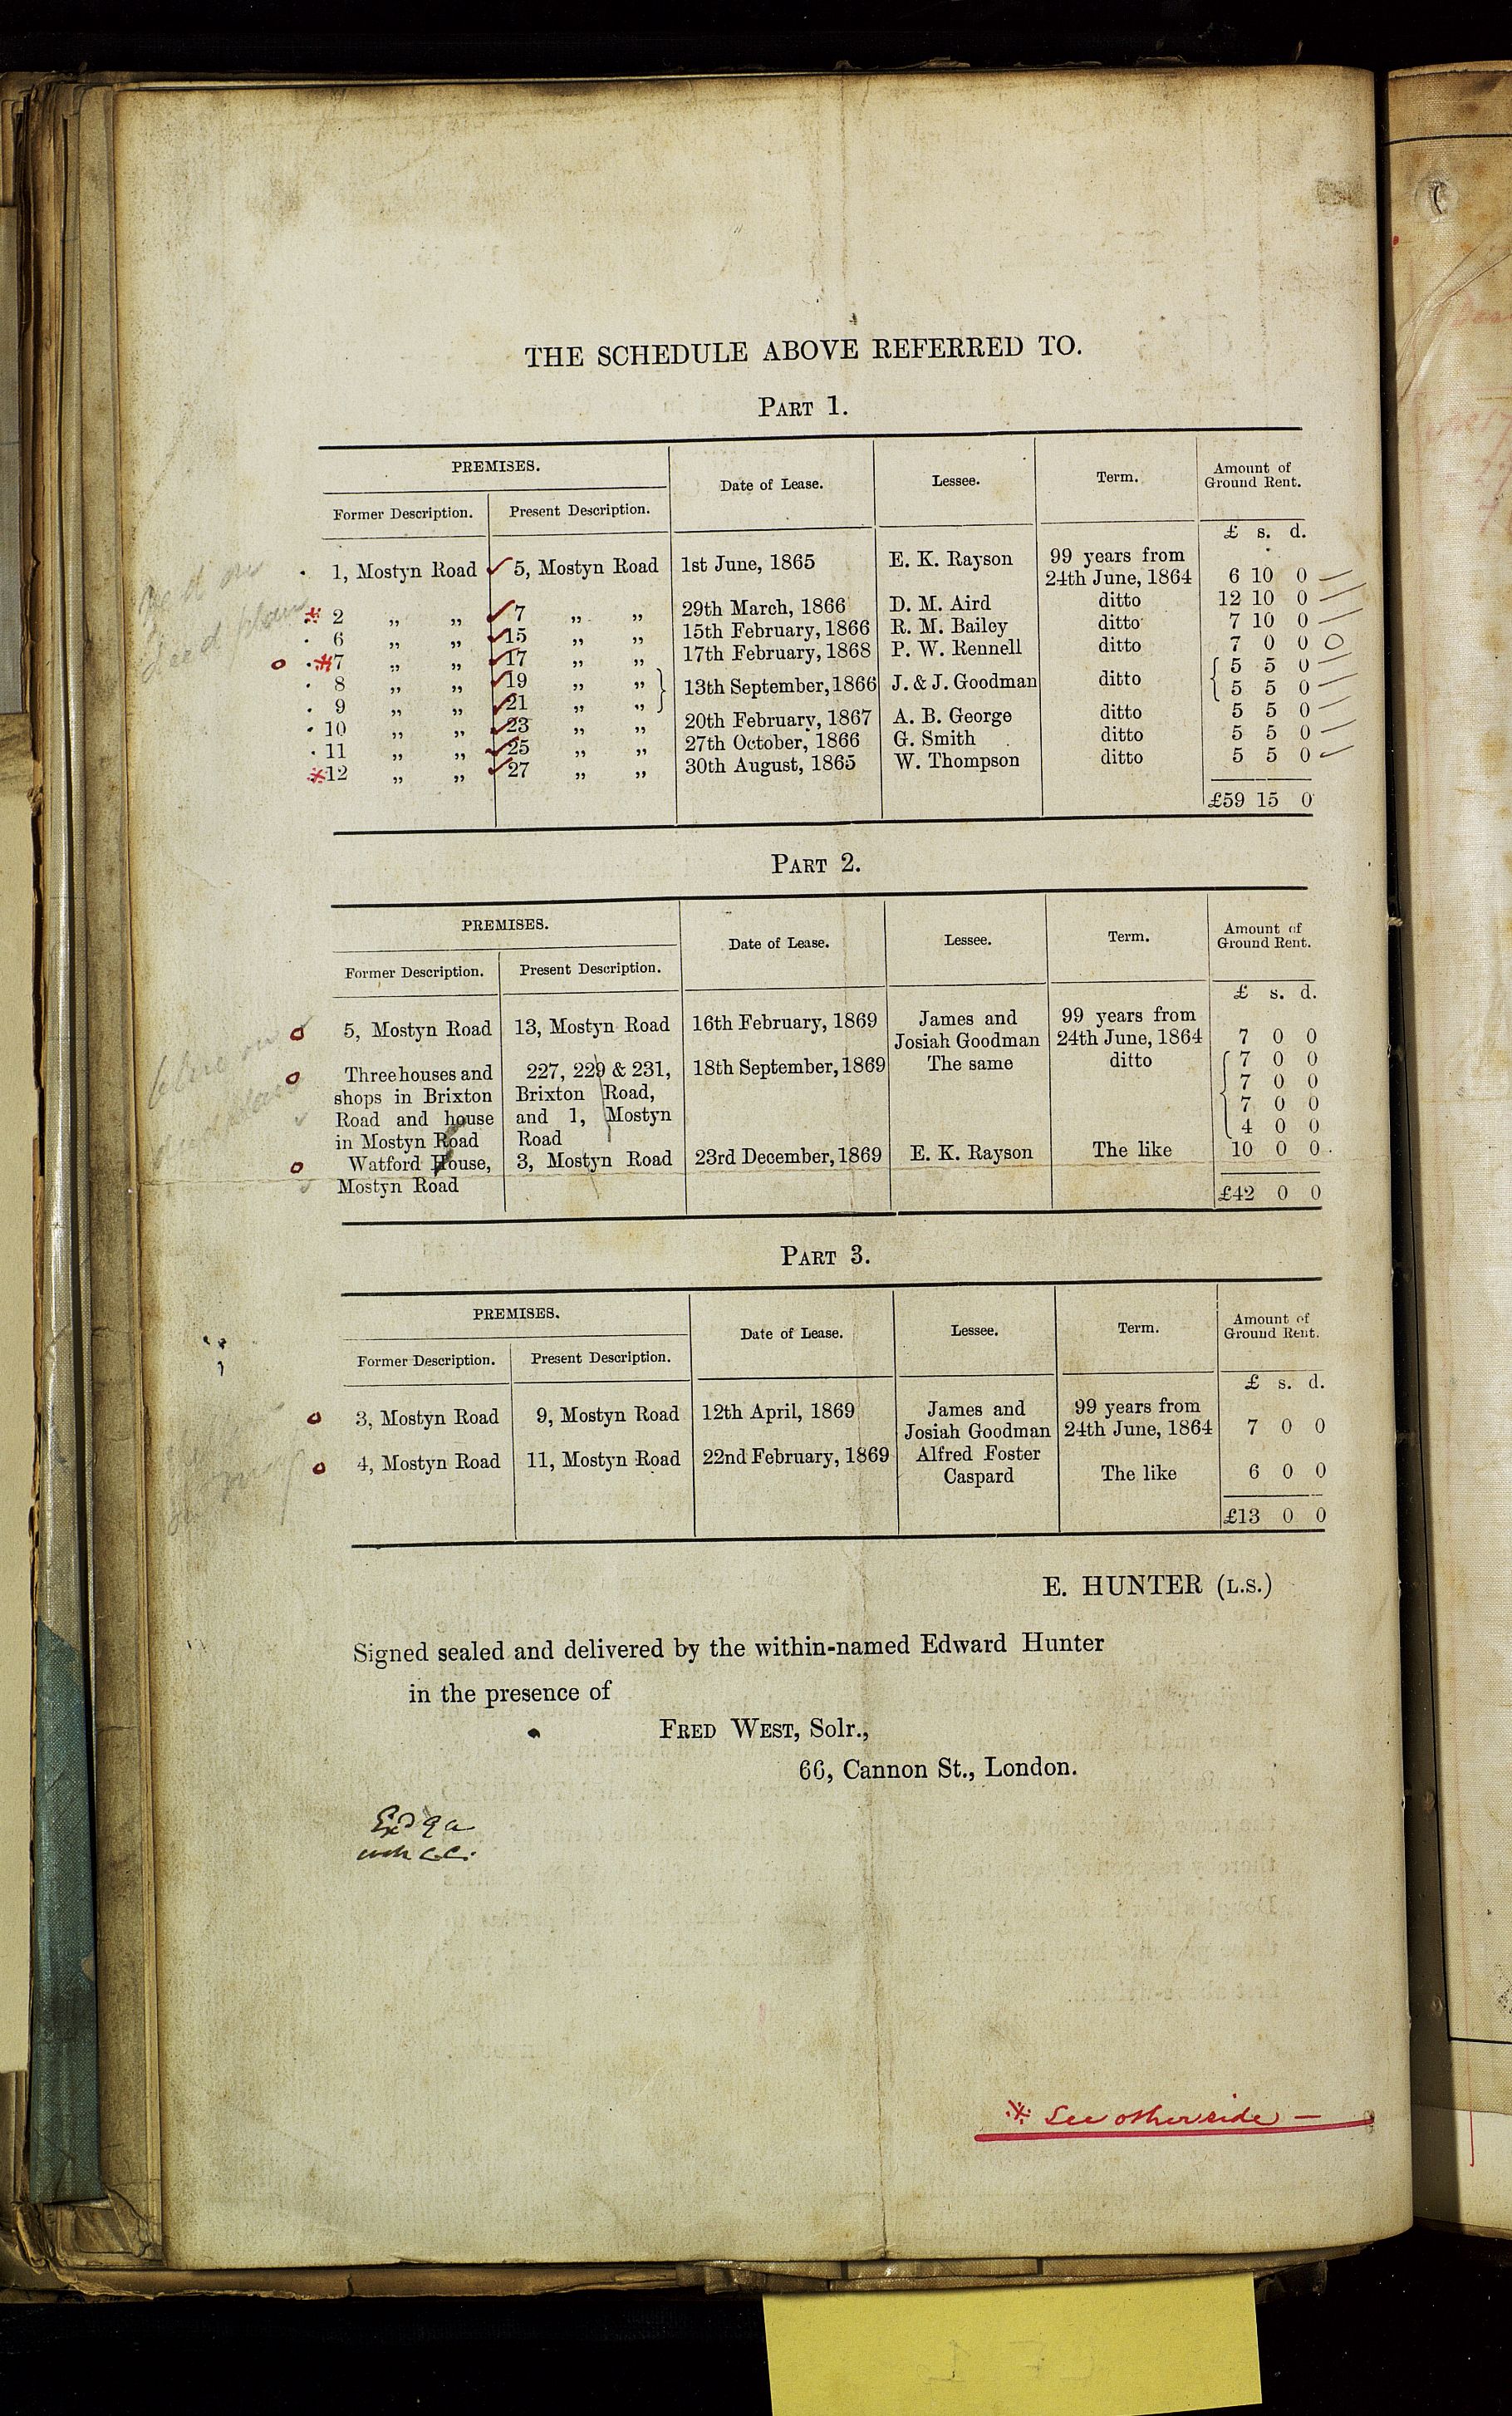 THE SCHEDULE ABOVE REFERRED TO.
PART 1.
PREMISES. Date of Lease. Lessee. Term. Amount of Ground Rent.
Former Description. Present Description.
£ s. d.
1, Mostyn Road 5, Mostyn Road 1st June, 1865 E. K. Rayson 99 years from 24th June, 1864 6 10 0
* 2 „ „ 7 „ „ 29th March, 1866 D. M. Aird ditto 12 10 0
6 „ „ 15 „ „ 15th February, 1866 R. M. Bailey ditto 7 10 0
* 7 „ „ 17 „ „ 17th February, 1868 P. W. Rennell ditto 7 0 0
8 „ „ 19 „ „ } 13th September, 1866 J. & J. Goodman ditto { 5 5 0
9 „ „ 21 „ „ } { 5 5 0
10 „ „ 23 „ „ 20th February, 1867 A. B. George ditto 5 5 0
11 „ „ 25 „ „ 27th October, 1866 G. Smith ditto 5 5 0
* 12 „ „ 27 „ „ 30th August, 1865 W. Thompson ditto 5 5 0
£59 15 0
PART 2.
PREMISES. Date of Lease. Lessee. Term. Amount of Ground Rent.
Former Description. Present Description.
£ s. d.
5, Mostyn Road 13, Mostyn Road 16th February, 1869 James and Josiah Goodman 99 years from 24th June, 1864 7 0 0
Three houses and 227, 229 & 231, 18th September, 1869 The same ditto 7 0 0
shops in Brixton Brixton Road, 7 0 0
Road and house and 1, Mostyn 7 0 0
in Mostyn Road Road 4 0 0
Watford House, 3, Mostyn Road 23rd December, 1869 E. K. Rayson The like 10 0 0
Mostyn Road £42 0 0
PART 3.
PREMISES. Date of Lease. Lessee. Term. Amount of Ground Rent.
Former Description. Present Description.
£ s. d.
3, Mostyn Road 9, Mostyn Road 12th April, 1869 James and Josiah Goodman 99 years from 24th June, 1864 7 0 0
4, Mostyn Road 11, Mostyn Road 22nd February, 1869 Alfred Foster Caspard The like 6 0 0
£13 0 0
E. HUNTER (L.S.)
Signed sealed and delivered by the within-named Edward Hunter
in the presence of
FRED WEST, Solr.,
66, Cannon St., London.
* See otherside —